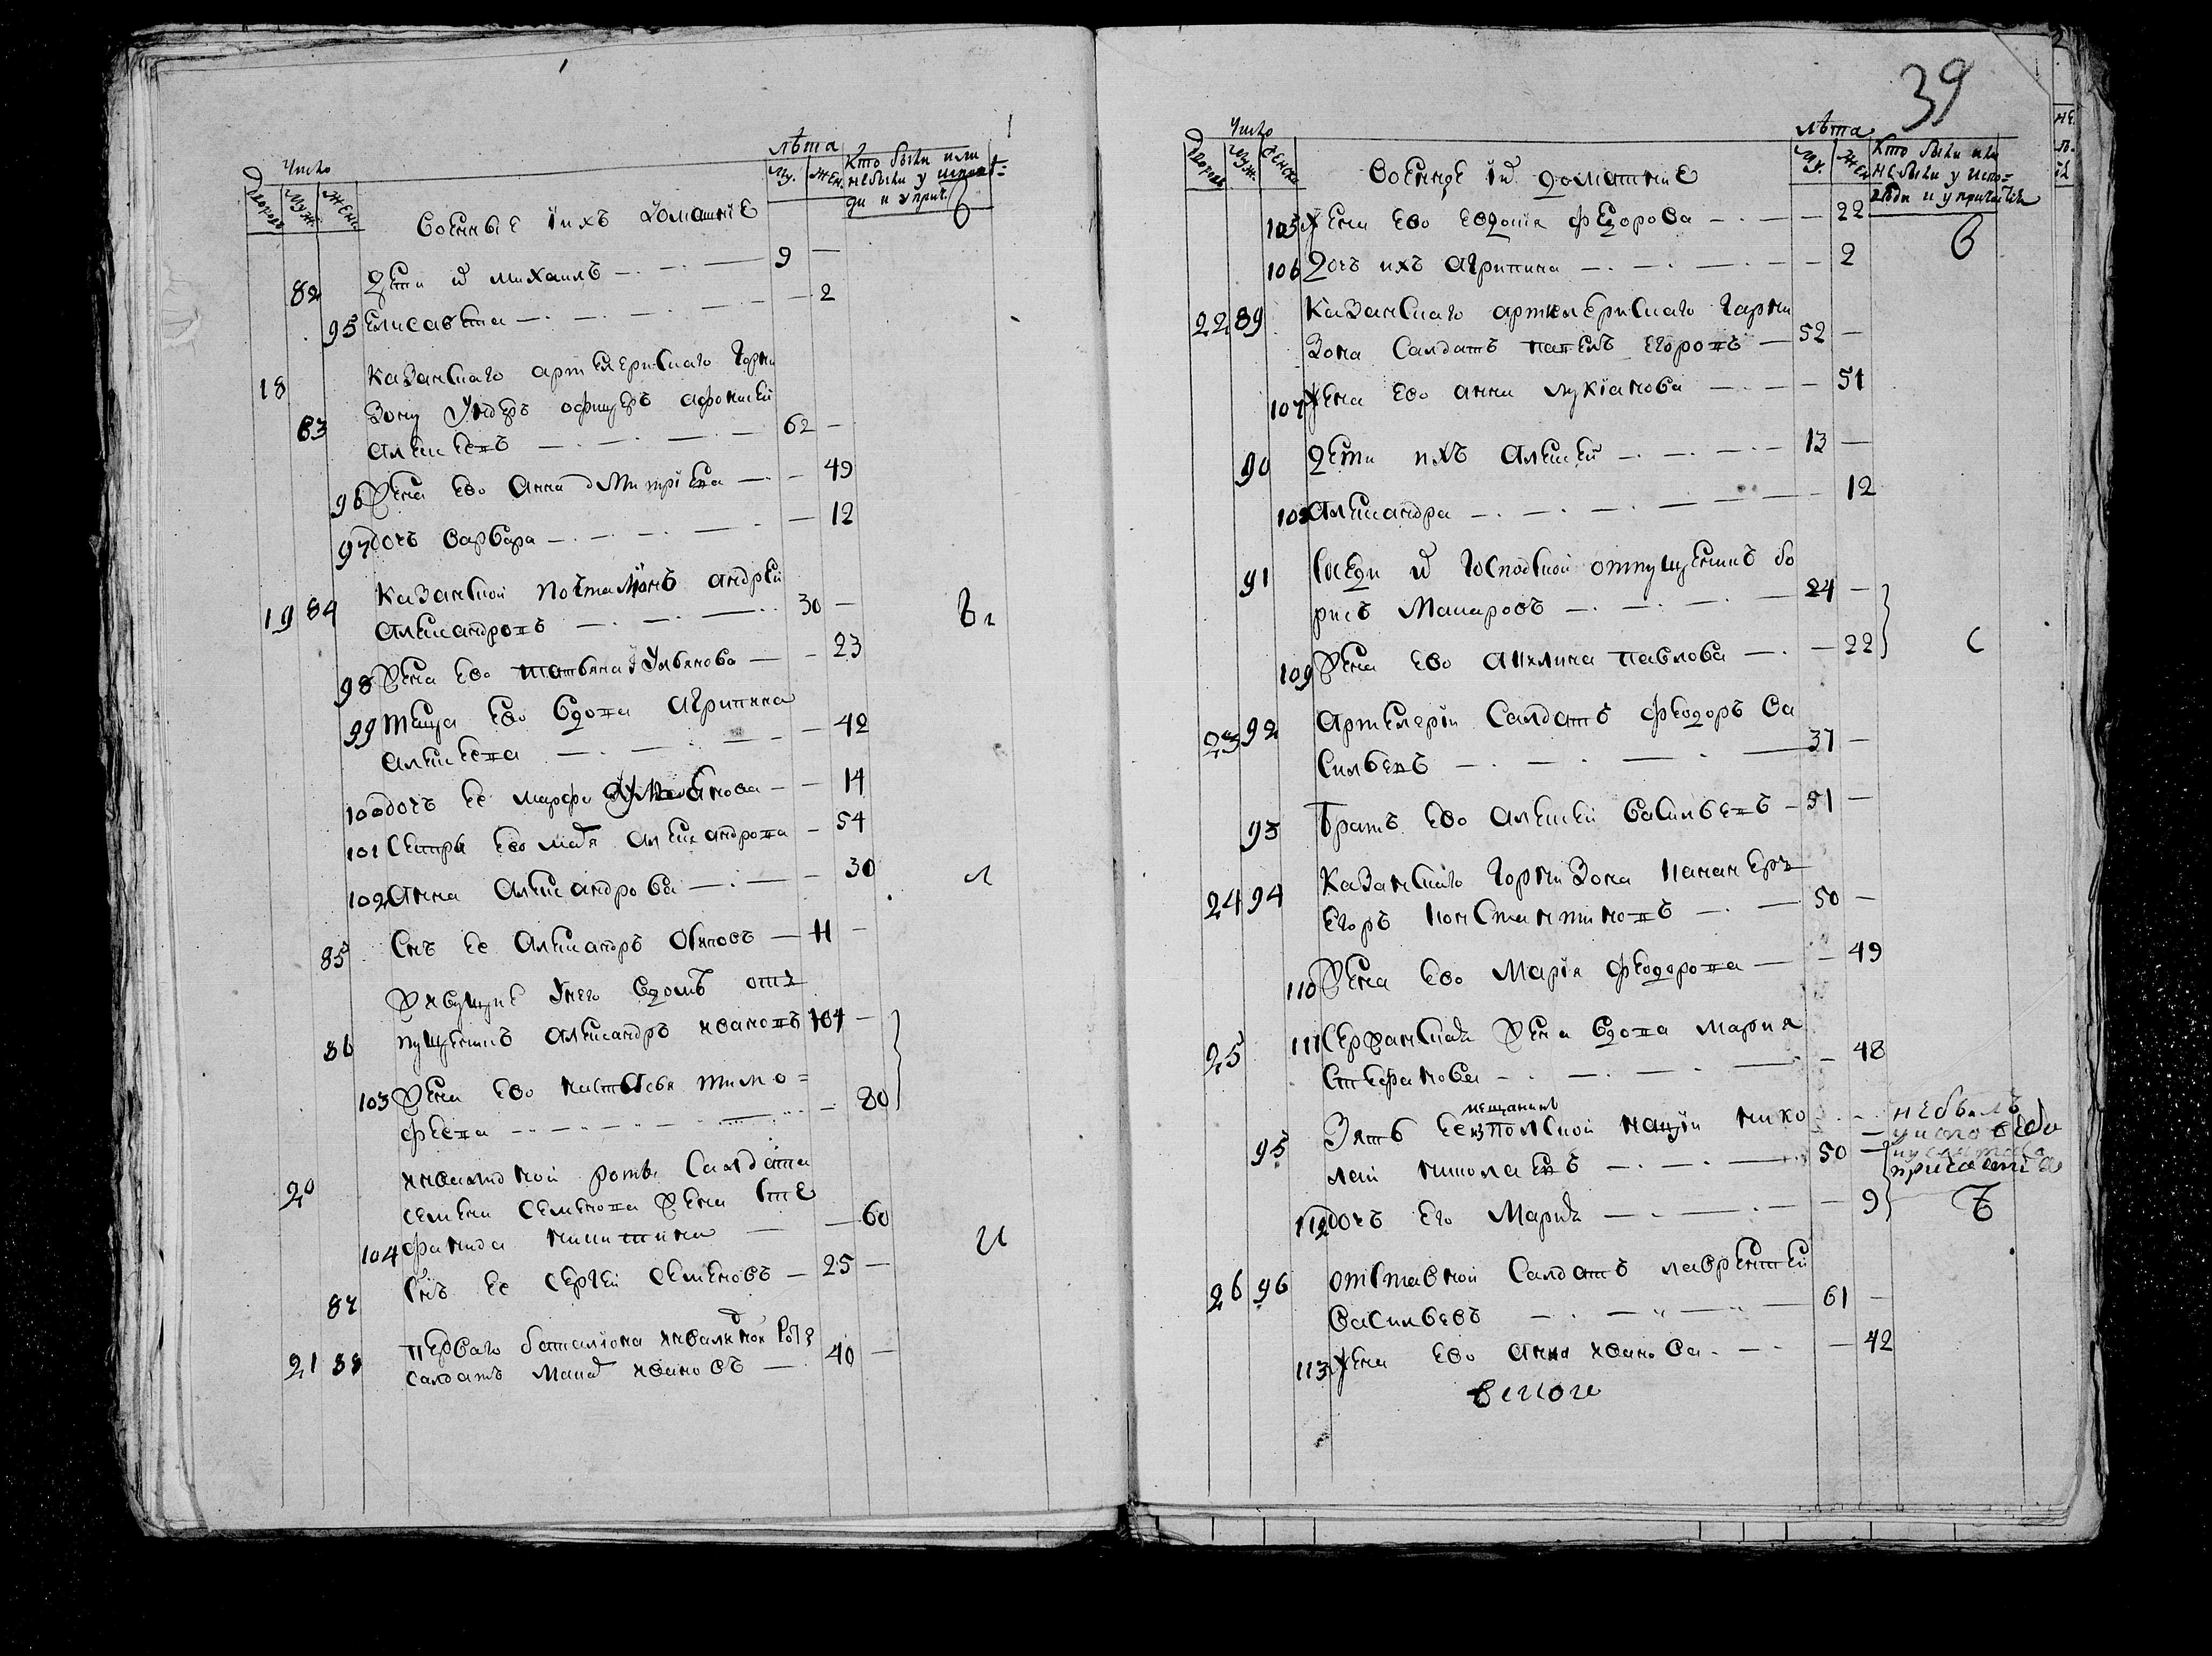 Число
лѣта
Кто были или
дворовъ
Муж.
Женс.
Военные ихъ домашние
Му.
Жен.
не были у испове-
ди и у прич.
82 Дети Михаилъ 9 —
95 Елисавета — 2
18 Казанскаго артилерискаго горни
83 зону Ундеръ офицеръ Афонасей
Алексеевъ 62 —
96 Жена ево Анна Дмитріева — 49
97 дочь Варвара — 12
19 84 Казанской почталіонъ Андрей
Александровъ 30 —
98 Жена ево Татьяна Ульянова — 23
99 Теща ево вдова Агрипина
Алексеева — 42
100 дочь ее Марфа Ульянова — 14
101 Сестры ево Александрова — 54
102 Анна Александрова — 30
85 Снъ ее Александръ 11 —
Живущие у него вдомѣ отъ
86 пущеникъ Александръ Ивановъ 104 —
103 Жена ево Настасья Тимо=
феева — 80
20 Инвалидной роты Салдата
Семена Семенова Жена Сте
104 фанида Никитина — 60
87 Снъ ее Сергей Семеновъ — 25 —
21 88 Перваго баталіона инвалидной роты
Салдатъ Ивановъ — 40 —
39
Число
лѣта
Кто были или
дворовъ
Муж.
Женска
Военные домашние
Му.
Жен
не были у испо=
веди и у причастія
105 Жена ево Евдокия Федорова — 22
106 Дочь ихъ Агрипина — 2
22 89 Казанскаго артилерискаго гарни
зона Салдатъ Павелъ Егоровъ — 52 —
107 Жена ево Анна Лукіанова — 51
90 Дети ихъ Алексей 13 —
108 Александра — 12
91 Господской отпущеникъ Бо
рисъ Макаровъ 24 —
109 Жена ево Акилина Павлова — 22
23 92 Артилеріи Салдатъ Феодоръ Ва
сильевъ 37 —
93 Братъ ево Алексей Васильевъ — 51 —
24 94 Казанскаго горнизона канонеръ
Егоръ Константиновъ 50 —
110 Жена ево Марія Феодорова — 49
25 111 Сержанская Жена вдова Мария
Стефанова — 48
мещанинъ
95 Зять ее изъ полской нацiи Нико
лай Николаевъ 50 —
не былъ
у исповеди
причастія
112 дочь его Мария — 9
26 96 Отставной Салдатъ Лаврентей
Васильевъ 61 —
113 Жена ево Анна Иванова — 42